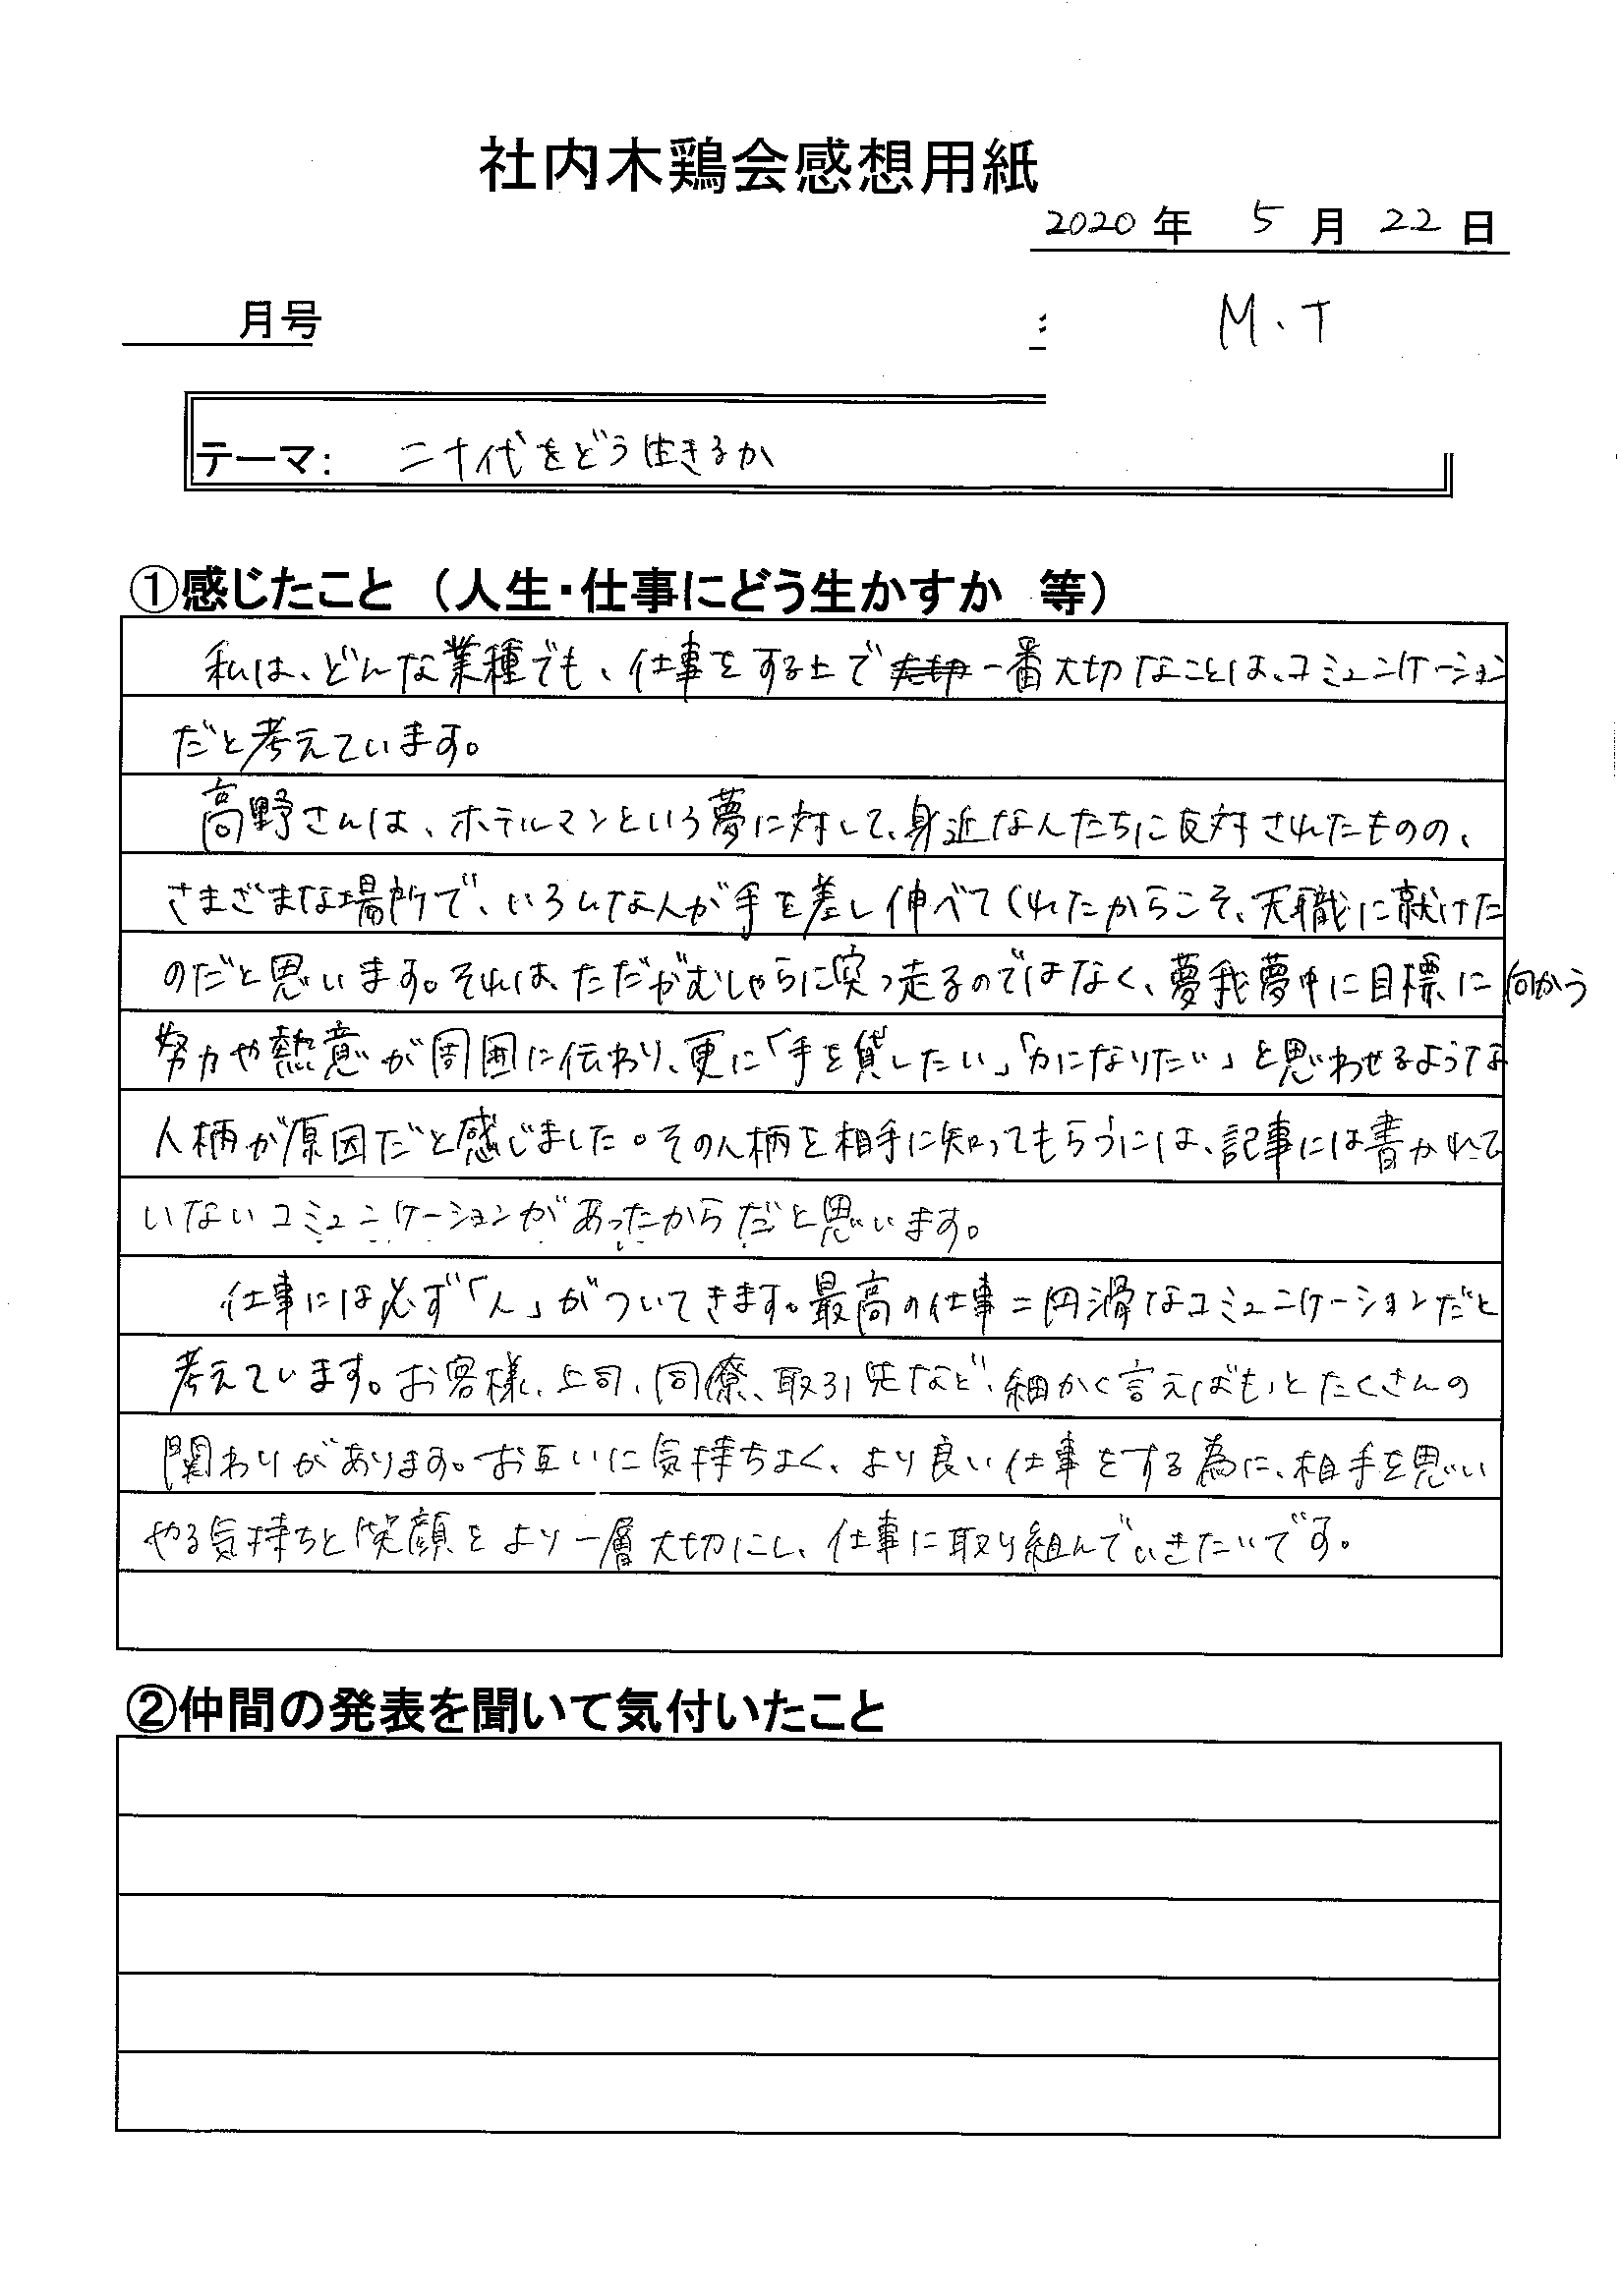 社内木鶏会感想用紙
2020年 5月 22日
月号
M.T
テーマ: 二十代をどう生きるか
①感じたこと (人生・仕事にどう生かすか 等)
私は、どんな業種でも、仕事をする上で一番大切なことは、コミュニケーション
だと考えています。
高野さんは、ホテルマンという夢に対して、身近な人たちに反対されたものの、
さまざまな場所で、いろんな人が手を差し伸べてくれたからこそ、天職に就けた
のだと思います。それは、ただがむしゃらに突っ走るのではなく、夢我夢中に目標に向かう
努力や熱意が周囲に伝わり、更に「手を貸したい」「力になりたい」と思わせるような
人柄が原因だと感じました。その人柄を相手に知ってもらうには、記事には書かれて
いないコミュニケーションがあったからだと思います。
仕事には必ず「人」がついてきます。最高の仕事=円滑なコミュニケーションだと
考えています。お客様、上司、同僚、取引先など、細かく言えばもっとたくさんの
関わりがあります。お互いに気持ちよく、より良い仕事をする為に、相手を思い
やる気持ちと笑顔をより一層大切にし、仕事に取り組んでいきたいです。
②仲間の発表を聞いて気付いたこと